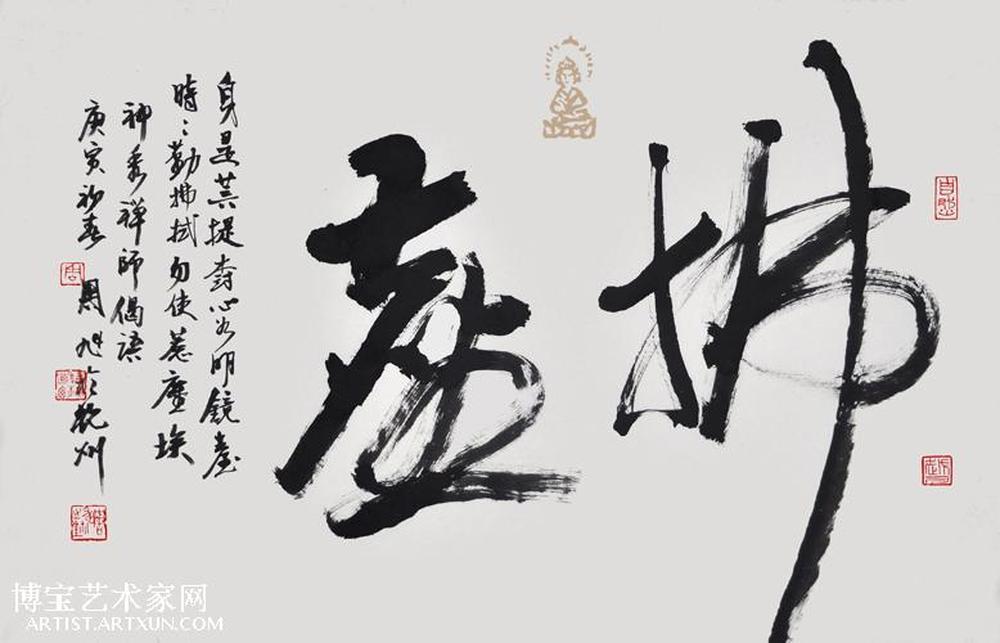 拂塵
身是菩提壽心如明鏡臺
時ミ勤拂拭勿使惹塵埃
神秀禪師偈語
庚寅初春 周旭於杭州
博宝艺术家网
ARTIST.ARTXUN.COM